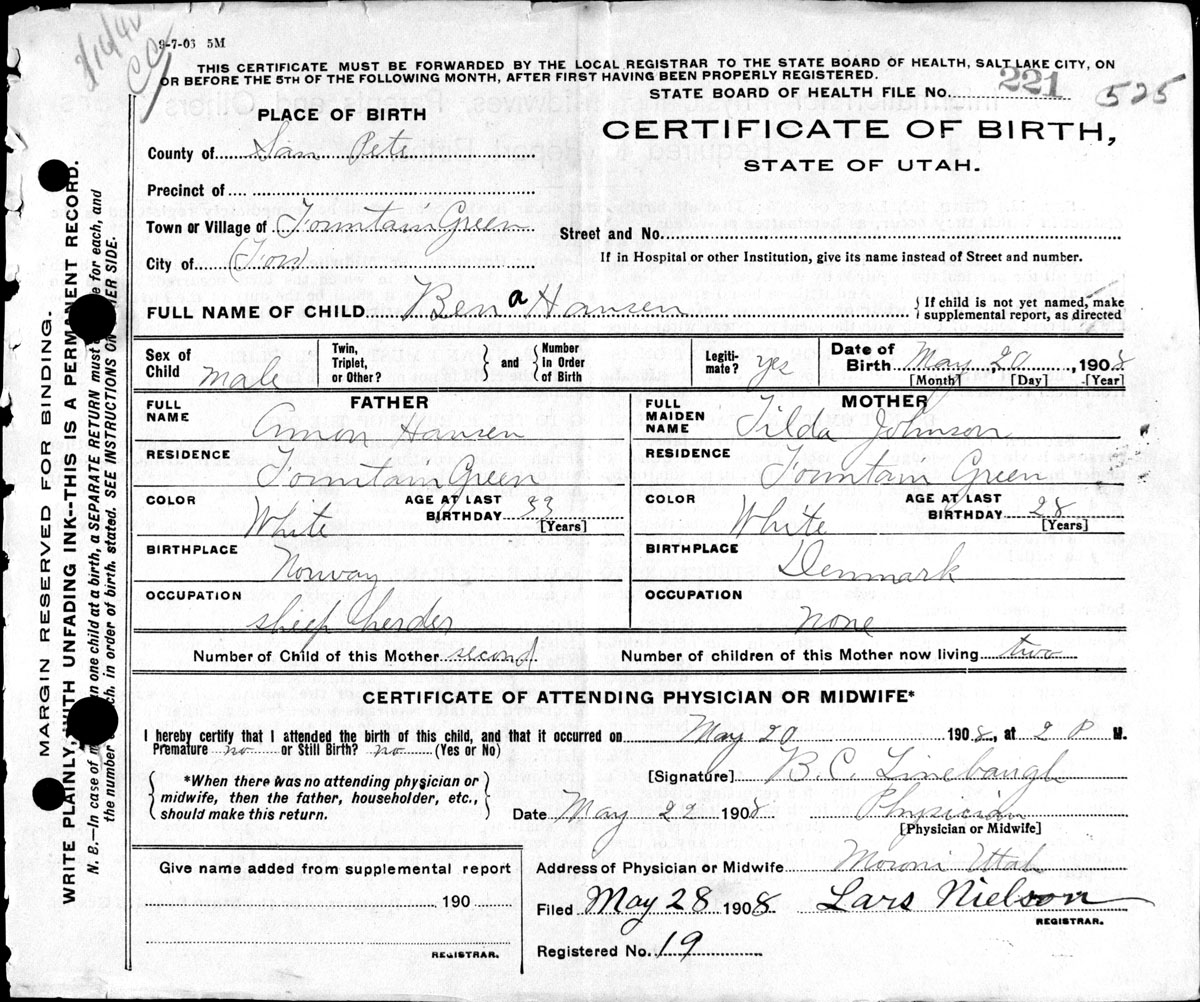 3/16/42
9-7-03 5M
THIS CERTIFICATE MUST BE FORWARDED BY THE LOCAL REGISTRAR TO THE STATE BOARD OF HEALTH, SALT LAKE CITY, ON
OR BEFORE THE 5TH OF THE FOLLOWING MONTH, AFTER FIRST HAVING BEEN PROPERLY REGISTERED.
STATE BOARD OF HEALTH FILE NO. 221 525
PLACE OF BIRTH
CERTIFICATE OF BIRTH,
STATE OF UTAH.
County of San Pete
Precinct of
Town or Village of Fountain Green
Street and No.
City of (Town)
If in Hospital or other Institution, give its name instead of Street and number.
FULL NAME OF CHILD Ben a Hansen { If child is not yet named, make
supplemental report, as directed
Sex of Child male Twin, Triplet, or Other? } and { Number In Order of Birth Legiti- mate? yes Date of Birth May 20, 1908
[Month] [Day] [Year]
FATHER MOTHER
FULL NAME Amon Hansen FULL MAIDEN NAME Tilda Johnson
RESIDENCE Fountain Green RESIDENCE Fountain Green
COLOR White AGE AT LAST BIRTHDAY 33 [Years] COLOR White AGE AT LAST BIRTHDAY 28 [Years]
BIRTHPLACE Norway BIRTHPLACE Denmark
OCCUPATION sheep herder OCCUPATION none
Number of Child of this Mother second Number of children of this Mother now living two
CERTIFICATE OF ATTENDING PHYSICIAN OR MIDWIFE*
I hereby certify that I attended the birth of this child, and that it occurred on May 20 1908, at 2 P M.
Premature no or Still Birth? no (Yes or No)
{ *When there was no attending physician or
midwife, then the father, householder, etc.,
should make this return. }
[Signature] B.C. Linebaugh
Date May 22 1908 Physician
[Physician or Midwife]
Give name added from supplemental report
190
REGISTRAR.
Address of Physician or Midwife Moroni Utah
Filed May 28 1908 Lars Nielson
REGISTRAR.
Registered No. 19
MARGIN RESERVED FOR BINDING.
WRITE PLAINLY, WITH UNFADING INK--THIS IS A PERMANENT RECORD.
N. B.--In case of one child at a birth, a SEPARATE RETURN must for each, and
the number ch. in order of birth, stated. SEE INSTRUCTIONS ON ER SIDE.